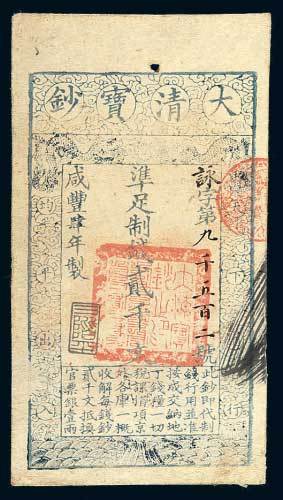 大清寶鈔
詠字第九千五百二號
準足制錢貳千文
咸豐肆年製
天下
行
均平出入
此鈔即代制
錢行用並准
按成交納地
丁錢糧一切
稅課捐項京
外各庫一概
收解每錢鈔
貳千文抵換
官票銀壹兩